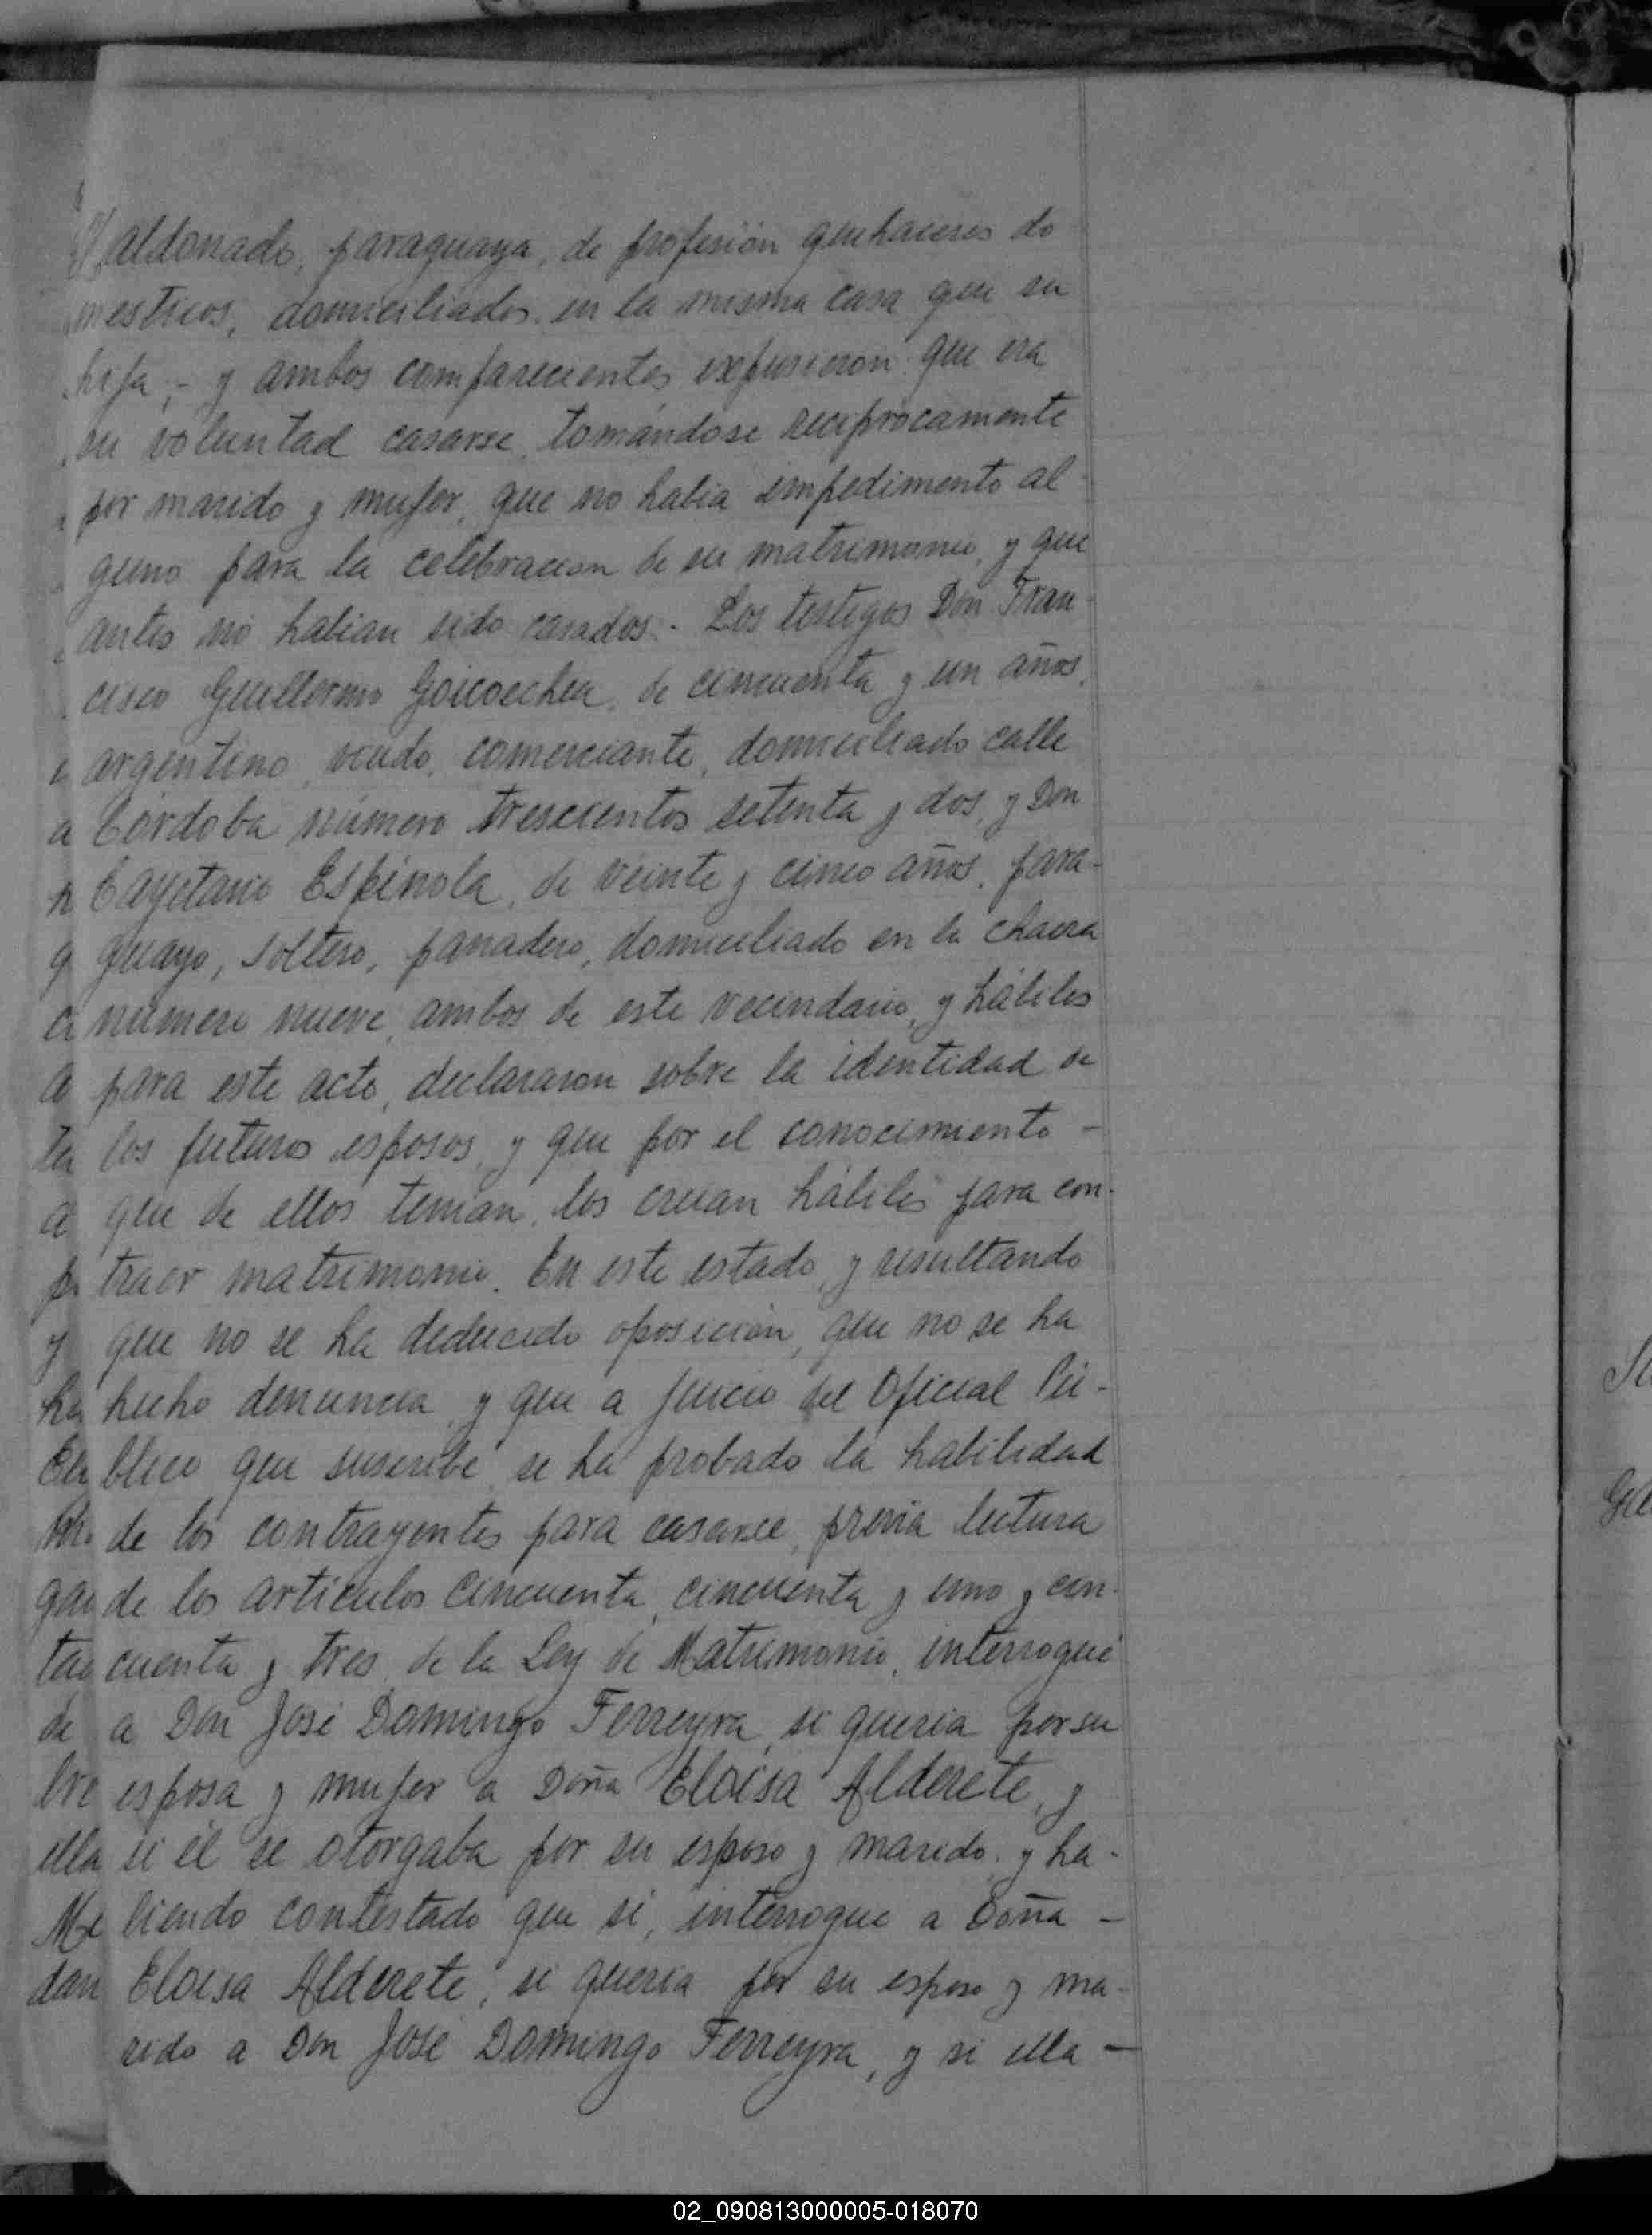 Maldonado, paraguaya, de profesión quehaceres do
mesticos, domiciliados en la misma casa que su
hija, - y ambos comparecientes expusieron que era
su voluntad casarse, tomándose reciprocamente
por marido y mujer, que no habia impedimento al
guno para la celebracion de su matrimonio, y que
antes no habian sido casados. - Los testigos Don Fran-
cisco Guillermo Goicoechea, de cincuenta y un años,
argentino, viudo, comerciante, domiciliado calle
Córdoba número trescientos setenta y dos, y Don
Cayetano Espínola, de veinte y cinco años, para-
guayo, soltero, panadero, domiciliado en la chacra
número nueve, ambos de este vecindario, y hábiles
para este acto, declararon sobre la identidad de
los futuros esposos, y que por el conocimiento -
que de ellos tenian, los creian hábiles para con-
traer matrimonio. En este estado, y resultando
que no se ha deducido oposición, que no se ha
hecho denuncia, y que a juicio del Oficial Pú-
blico que suscribe, se ha probado la habilidad
de los contrayentes para casarse, previa lectura
de los articulos cincuenta, cincuenta y uno y cin-
cuenta y tres, de la Ley de Matrimonio, interrogué
a Don José Domingo Ferreyra, si queria por su
esposa y mujer a Doña Eloisa Alderete, y
si él se otorgaba por su esposo y marido, y ha-
biendo contestado que si, interrogue a Doña -
Eloisa Alderete, si queria por su esposo y ma-
rido a Don José Domingo Ferreyra, y si ella -
02_090813000005-018070